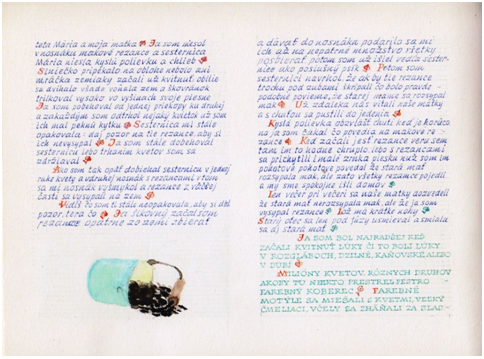 teta Mária a moja matka Ja som niesol
v nosnáku makové rezance a sesternica
Mária niesla kyslú polievku a chlieb
Slniečko pripékalo na oblohe nebolo ani
mráčka zemiaky začali už kvitnúť obilie
sa dvíhalo všade voňala zem a škovránok
trilkoval vysoko vo výšinách svoje piesne
Ja som pobehoval od jednej priekopy ku druhej
a zakaždým som odtrhol nejaký kvietok až som
ich mal peknú kytku Sesternica mi stále
opakovala daj pozor na tie rezance, aby si
ich nevysypal Ja som stále dobehoval
sesternicu lebo trhaním kvetov som sa
zdržiaval
Ako som tak opäť dobiehal sesternicu v jednej
ruke kvety a v druhej nosnák s rezancami vtom
sa mi nosnák vyšmykol a rezance z väčšej
časti sa vysypali na zem
Vidíš čo som ti stále neopakovala, aby si dal
pozor, teraz čo Ja šikovný začal som
rezance opatrne zo zeme zbierať
a dávať do nosnáka podarilo sa mi
ich až na nepatrné množstvo všetky
posbierať potom som už išiel vedľa sester-
nice ako poslušný psík Potom som
sesternici navrhol, že ak by tie rezance
trochu pod zubami škrípali čo bolo pravdě-
podobné povieme, že starej mame sa rozsypal
mak Už zďaleka nás vítali naše matky
a s chuťou sa pustili do jedenia
Kyslá polievka obzvlášť chutí, keď je horúca
na ja som čakal čo povedia na makové re-
zance Keď začali jesť rezance veru sem
tam im to hodne škripelo, lebo s rezancami
sa prichytili i malé zrnká piesku nuž som im
pohotovo povedal že stará mať
rozsypala mak, ale zato všetky rezance pojedli
a my sme spokojne išli domov
Len večer pri večeri sa naše matky dozvedeli
že stará mať nerozsypala mak, ale že ja som
vysypal rezance Lož má krátke nohy
Starý otec sa len pod fúzy usmieval a smiala
sa aj stará mať
JA SOM BOL NAJRADŠEJ KEĎ
ZAČALI KVITNÚŤ LÚKY ČI TO BOLI LÚKY
V ROZGLÁBOCH, DZILNE, KAŇOVSKÉ ALEBO
V DÚBÍ
MILIÓNY KVETOV, RÔZNYCH DRUHOV
AKOBY TU NIEKTO PRESTREL PESTRO
FAREBNÝ KOBEREC, FAREBNÉ
MOTÝLE SA MIEŠALI S KVETMI, VEĽKÝ
ČMELIACI, VČELY SA ZHÁŇALI ZA SLAD-